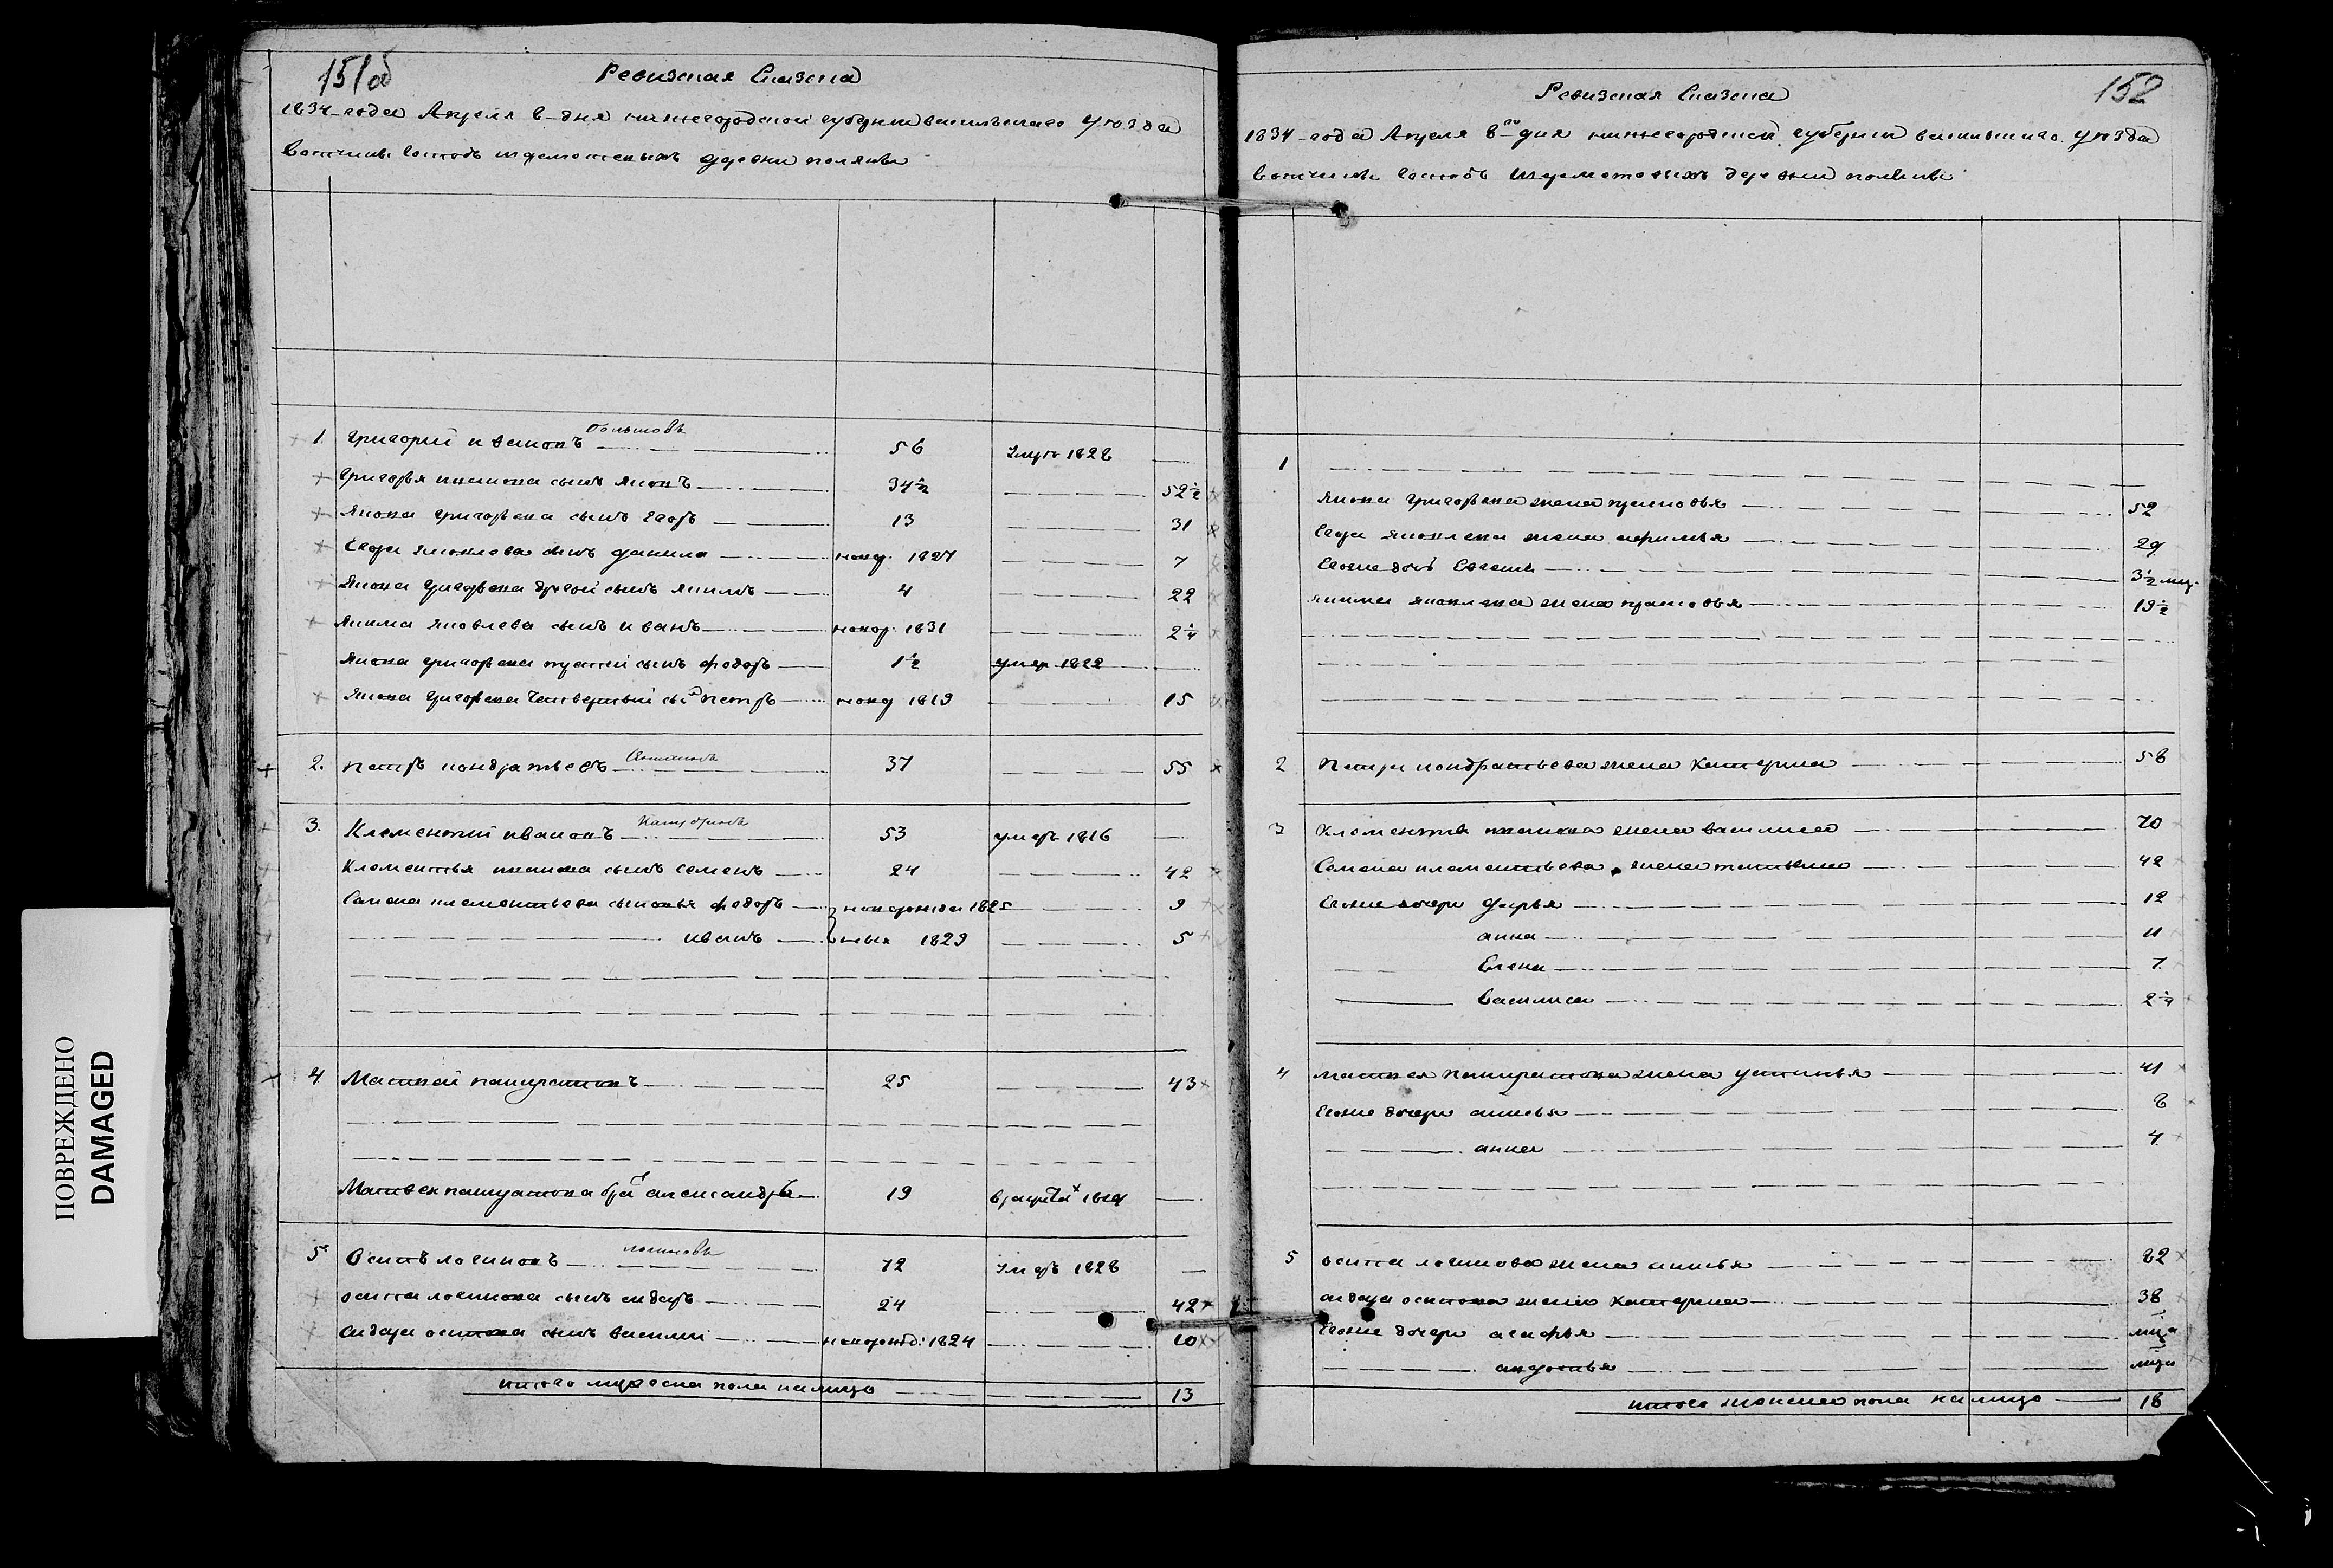 ПОВРЕЖДЕНО
DAMAGED
151об
Ревизская Сказка
1834 года Апреля 8 дня нижегородской губернии васильскаго уезда
Вотчины Господъ шереметевыхъ деревни полянки
1. григорий ивановъ Большовъ 56 Умръ 1828
григорья иванова сынъ яковъ 34½ 52½
якова григорьева сынъ Егоръ 13 31
Егора яковлева сынъ данила новор. 1827 7
якова григорьева другой сынъ якимъ 4 22
якима яковлева сынъ иванъ новор. 1831 2¼
якова григорьева третей сынъ федоръ 1½ умер 1822
якова григорьева Четвертый сынъ петръ новор 1819 15
2. петръ кондратьевъ 37 55
3. Клементий ивановъ 53 умеръ 1816
Клементья иванова сынъ семенъ 24 42
Семена клементьева сыновья федоръ новорожден 1825 9
иванъ ныя 1829 5
4 Матвей панкратовъ 25 43
Матвея панкратова братъ александръ 19 1819
5 Осипъ логиновъ логиновъ 72 Умеръ 1828
осипа логинова сынъ сидоръ 24 42
сидора осипова сынъ василий новорожд. 1824 10
итого мужеска пола налицо 13
152
Ревизская Сказка
1834 года Апреля 8 дня нижегородской губернии васильскаго уезда
Вотчины Господъ Шереметевыхъ деревни полянки
1
якова григорьева жена прасковья 52
Егора яковлева жена афимья 29
Егоже дочь 3½ мец.
якима яковлева жена прасковья 19½
2 Петра кондратьева жена Катерина 58
3 клементья иванова жена василиса 70
Семена клементьева жена татьяна 42
Егоже дочери дарья 12
анна 11
Елена 7
Василиса 2¼
4 матвея панкратова жена устинья 41
Егоже дочери анисья 8
анна 4
5 осипа логинова жена анисья 82
сидора осипова жена катерина 38
Егоже дочери агафья
авдотья
итого женска пола налицо 18